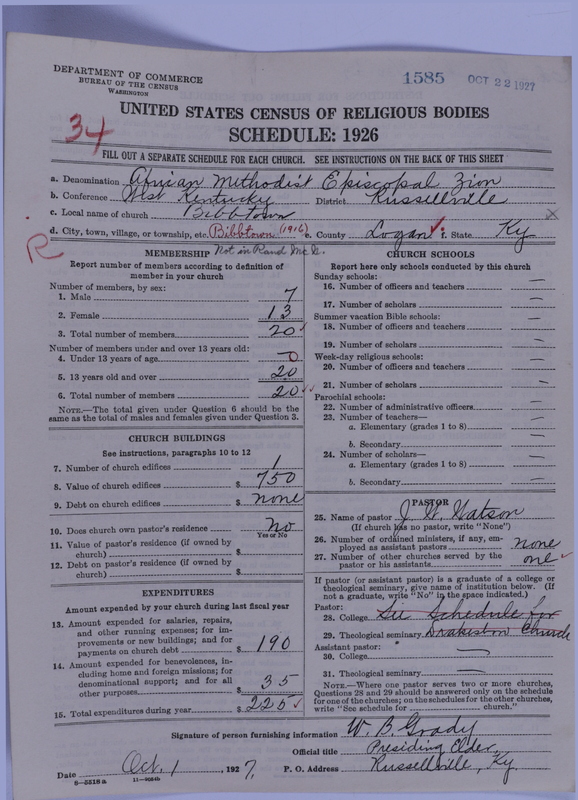 DEPARTMENT OF COMMERCE
BUREAU OF THE CENSUS
WASHINGTON
1585 OCT 22 1927
UNITED STATES CENSUS OF RELIGIOUS BODIES
34
SCHEDULE: 1926
FILL OUT A SEPARATE SCHEDULE FOR EACH CHURCH. SEE INSTRUCTIONS ON THE BACK OF THIS SHEET
a. Denomination African Methodist Episcopal Zion
b. Conference West Kentucky District Russellville
c. Local name of church Bibbtown
d. City, town, village, or township, etc. Bibbtown (1916) e. County Logan f. State Ky
R
Not in Rand Mc &.
MEMBERSHIP
Report number of members according to definition of
member in your church
Number of members, by sex:
1. Male 7
2. Female 13
3. Total number of members 20
Number of members under and over 13 years old:
4. Under 13 years of age 0
5. 13 years old and over 20
6. Total number of members 20
NOTE.—The total given under Question 6 should be
the same as total of males and females given under Question 3.
CHURCH BUILDINGS
See instructions, paragraphs 10 to 12
7. Number of church edifices 1
8. Value of church edifices $ 750
9. Debt on church edifices $ none
10. Does church own pastor's residence No
Yes or No
11. Value of pastor's residence (if owned by
church) $
12. Debt on pastor's residence (if owned by
church) $
EXPENDITURES
Amount expended by your church during last fiscal year
13. Amount expended for salaries, repairs,
and other running expenses; for im-
provements or new buildings; and for
payments on church debt $ 190
14. Amount expended for benevolences, in-
cluding home and foreign missions; for
denominational support; and for all
other purposes $ 35
15. Total expenditures during year $ 225
CHURCH SCHOOLS
Report here only schools conducted by this church
Sunday schools:
16. Number of officers and teachers —
17. Number of scholars —
Summer vacation Bible schools:
18. Number of officers and teachers —
19. Number of scholars —
Week-day religious schools:
20. Number of officers and teachers —
21. Number of scholars —
Parochial schools:
22. Number of administrative officers —
23. Number of teachers—
a. Elementary (grades 1 to 8) —
b. Secondary —
24. Number of scholars—
a. Elementary (grades 1 to 8) —
b. Secondary —
PASTOR
25. Name of pastor J. W. Watson
(If church has no pastor, write "None")
26. Number of ordained ministers, if any, em-
ployed as assistant pastors none
27. Number of other churches served by the
pastor or his assistants one
If pastor (or assistant pastor) is a graduate of a college or
theological seminary, give name of institution below. (If
not a graduate, write "No" in the space indicated.)
Pastor:
28. College See Schedule for
29. Theological seminary Drakeston Church
Assistant pastor:
30. College —
31. Theological seminary —
NOTE.—Where one pastor serves two or more churches,
Questions 28 and 29 should be answered only on the schedule
for one of the churches; on the schedules for the other churches,
write "See schedule for church."
Signature of person furnishing information W. B. Grady
Official title Presiding Elder
Date Oct. 1, 1927. P. O. Address Russellville, Ky.
8—5518a 11—9054b